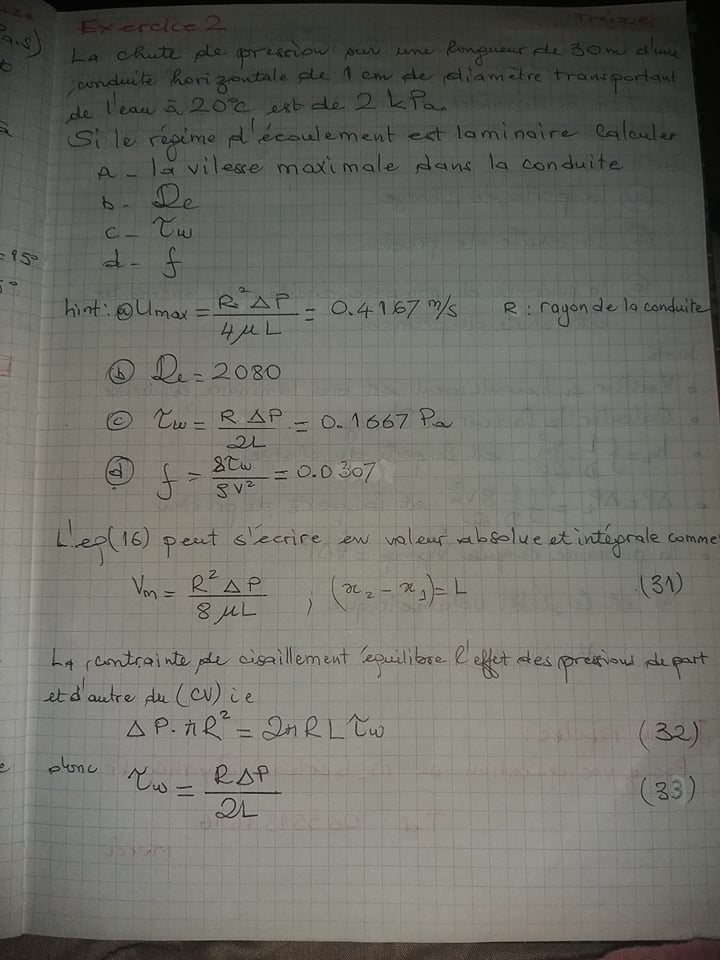 Exercice 2
Treize
La chute de pression sur une longueur de 30m d'une
conduite horizontale de 1 cm de diamètre transportant
de l'eau à 20°c est de 2 kPa.
Si le régime d'écoulement est laminaire Calculer
a - la vitesse maximale dans la conduite
b - Re
c - τw
d - f
hint: ⓐ Umax = R² ΔP / 4μL = 0.4167 m/s R : rayon de la conduite
ⓑ Re = 2080
ⓒ τw = R ΔP / 2L = 0.1667 Pa
ⓓ f = 8τw / ρV² = 0.0307
L'eq(16) peut s'écrire en valeur absolue et intégrale comme
Vm = R² ΔP / 8μL ; (x₂ - x₁) = L (31)
La contrainte de cisaillement équilibre l'effet des pressions de part
et d'autre du (CV) i e
ΔP. πR² = 2πRL τw (32)
donc τw = RΔP / 2L (33)